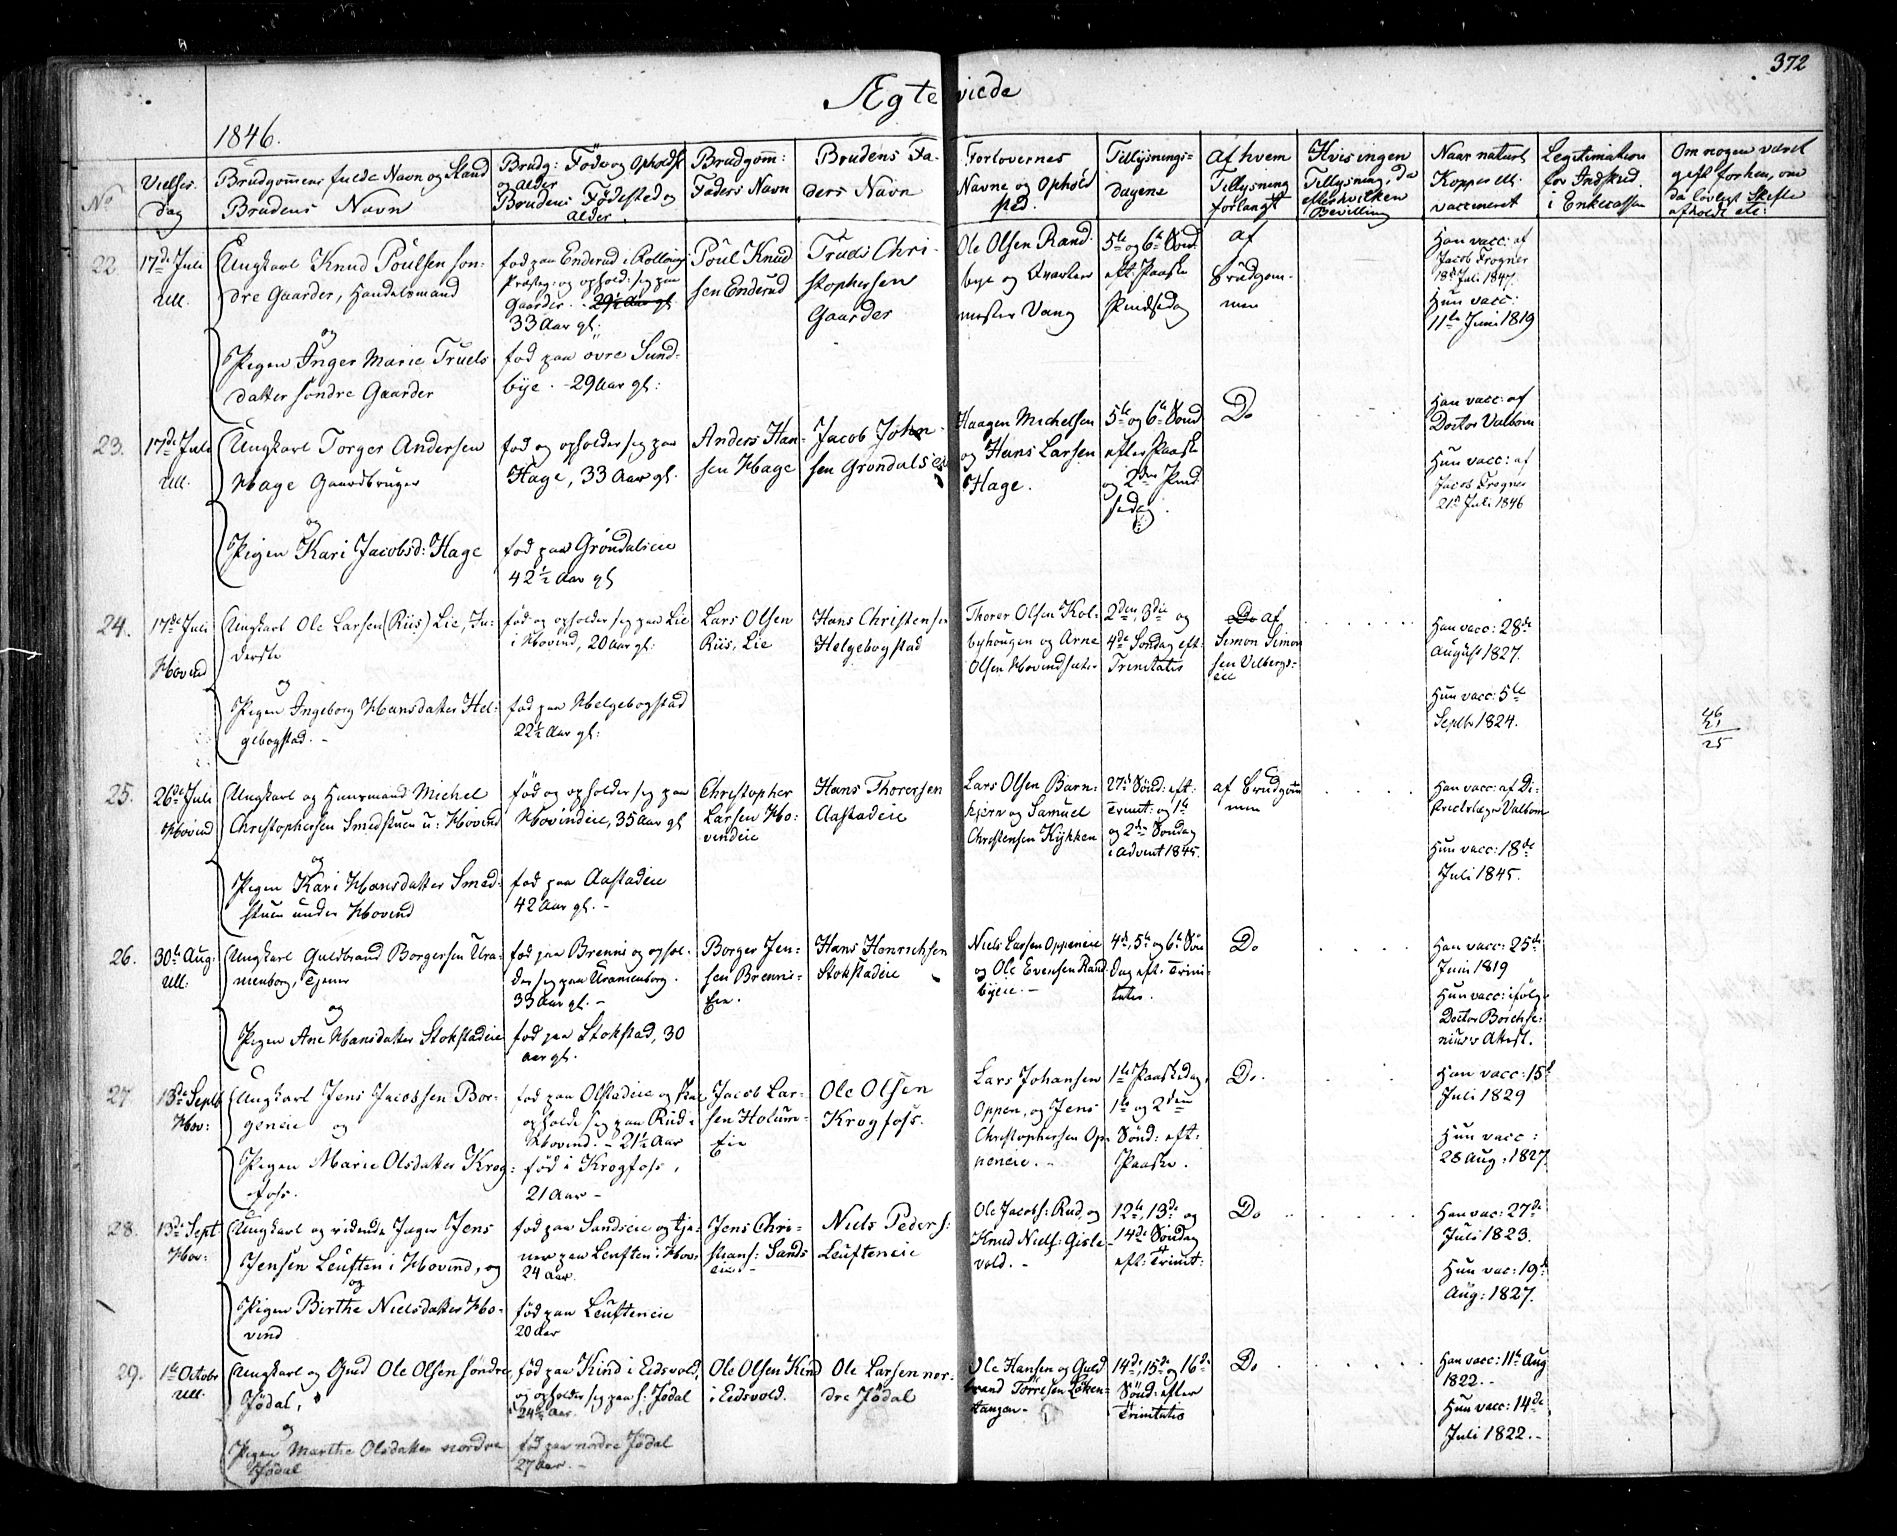 372
Ægteviede
1846.
No
Vielses
dag
Brudgommens fulde Navn og Stand
Brudens Navn
Brudg: Føde og Opholdst
og Alder
Brudens Fødested og
Alder
Brudgom:
Faders Navn
Brudens Fa-
ders Navn
Forlovernes
Navne og Ophold
sted.
Tillysnings-
dagene
Af hvem
Tillysning
forlangt
Hvis ingen
Tillysning, da
efter hvilken
Bevilling
Naar naturl
Kopper ell:
vaccineret
Legitimation
for Indskud
i Enkecassen
Om nogen været
gift forhen, om
da lovligt Skifte
afholdt etc:
22
17de Juli
Ull.
Ungkarl Knud Poulsen søn-
dre Gaarder, Handelsmand
og
Pigen Inger Marie Truels
datter søndre Gaarder
fød paa Enderud i
Præsteg: og ophold: sig paa
Gaarder. 29½ Aar gl
33 Aar gl:
fød paa øvre Sund-
bye. 29 Aar gl:
Poul Knud
sen Enderud
Truls Chri-
stophersen
Gaarder
Ole Olsen Rand-
bye og Qvarteer
mester Vang
5te og 6te Sønd
eft: Paaske
Pindsedag
af
Brudgom-
men
Han vacc: af
Jacob Frogner
Juli 1847.
Hun vacc:
11te Juni 1819
23.
17de Juli
Ull.
Ungkarl Torger Andersen
Hage Gaardbruger
og
Pigen Kari Jacobsd: Hage
fød og opholder sig paa
Hage, 33 Aar gl.
fød paa Grøndalseie
42½ Aar gl
Anders Han-
sen Hage
Jacob John-
sen Grøndalseie
Haagen Michelsen
og Hans Larsen
Hage.
5te og 6te Sønd
efter Paaske
og 2den Pind
sedag.
Do
Han vacc: af
Doctor Valbom
Hun vacc: af
Jacob Frogner
21de Juli 1846
24.
17de Juli
Hovind
Ungkarl Ole Larsen (Riis) Lie, In-
derste
og
Pigen Ingeborg Hansdatter Hel-
gebogstad.
fød og opholder sig paa Lie
i Hovind, 20 Aar gl:
fød paa Helgebogstad
22½ Aar gl:
Lars Olsen
Riis, Lie
Hans Christensen
Helgebogstad
Thorer Olsen Kol-
byhougen og Arne
Olsen Hovindsæter
2den, 3die og
4de Søndag eft:
Trinitatis
Do af
Simon Simon
sen Velbergs-
eie
Han vacc: 28de
August 1827.
Hun vacc: 5te
Septbr 1824.
46
21
25
25.
26de Juli
Hovind
Ungkarl og Huusmand Michel
Christophersen Smedstuen u: Hovind
og
Pigen Kari Hansdatter Smed-
stuen under Hovind
fød og opholder sig paa
Hovindeie, 35 Aar gl
fød paa Aastadeie
42 Aar gl.
Christopher
Larsen Ho-
vindeie
Hans Thoresen
Aastadeie
Lars Olsen Barn-
kjern og Samuel
Christensen Kykken
27de Sønd: eft:
Trinit: og 1te
og 2den Søndag
i Advent 1845.
af Brudgom
men
Han vacc: af Di-
strictslæge Valbom
Hun vacc: 18de
Juli 1845.
26.
30te Aug:
Ull.
Ungkarl Guldbrand Borgersen Ura-
nienborg, Tjener
og
Pigen Ane Hansdatter Stokstadeie
fød paa Brennie og ophol-
der sig paa Uranienborg.
33 Aar gl.
fød paa Stokstad, 30
Aar gl.
Borger Jen-
sen Brennie-
Eie.
Hans Henrichsen
Stokstadeie
Niels Larsen Oppeneie
og Ole Evensen Rand-
byeie.
4de, 5te og 6te Søn
dag eft: Trini-
tatis.
Do
Han vacc: 25de
Juni 1819
Hun vacc: ifølge
Doctor Borchse-
nius's Attest.
27.
13de Septb
Hov:
Ungkarl Jens Jacobsen Bor-
geneie og
Pigen Marie Olsdatter Krog-
foss.
fød paa Olstadeie og skal
opholde sig paa Rud i
Hovind. 21½ Aar
fød i Krogfoss,
21 Aar
Jacob Lar-
sen Holum-
Eie
Ole Olsen
Krogfoss.
Lars Johansen
Oppen, og Jens
Christophersen Op-
peneie.
1te Paaskedag,
1te og 2den
Sønd: eft:
Paaske.
Do.
Han vacc: 15de
Juli 1829
Hun vacc:
28 Aug: 1827.
28.
13de Sept
Hov:
Ungkarl og ridende Jæger Jens
Jensen Leuften i Hovind, og
og
Pigen Birthe Nielsdatter Ho-
vind
fød paa Sandseie og tje-
ner paa Leuften i Hov:
24 Aar.
fød paa Leufteneie
20 Aar
Jens Chri-
stians: Sands
eie.
Niels Peders:
Leufteneie
Ole Jacobs: Rud og
Knud Niels: Gisle-
vold.
12te, 13de og
14de Søndag
eft: Trinit:
Do
Han vac: 27de
Juli 1823.
Hun vac: 19de
Aug: 1827.
29.
1te Octobr
Ull.
Ungkarl og Gmd Ole Olsen søndre
Jødal,
og
Pigen Marthe Olsdatter nordre
Jødal
fød paa Kind i Eidsvold,
og opholder sig paa s: Jødal
24½ Aar.
fød paa nordre Jødal
27 Aar.
Ole Olsen Kind
i Eidsvold.
Ole Larsen nor-
dre Jødal
Ole Hansen og Guld
brand Torresen Løken-
tangen
14de, 15de og 16de
Sønd: efter
Trinitatis
Do
Han vacc: 11te Aug
1822.
Hun vacc: 14de
Juli 1822.